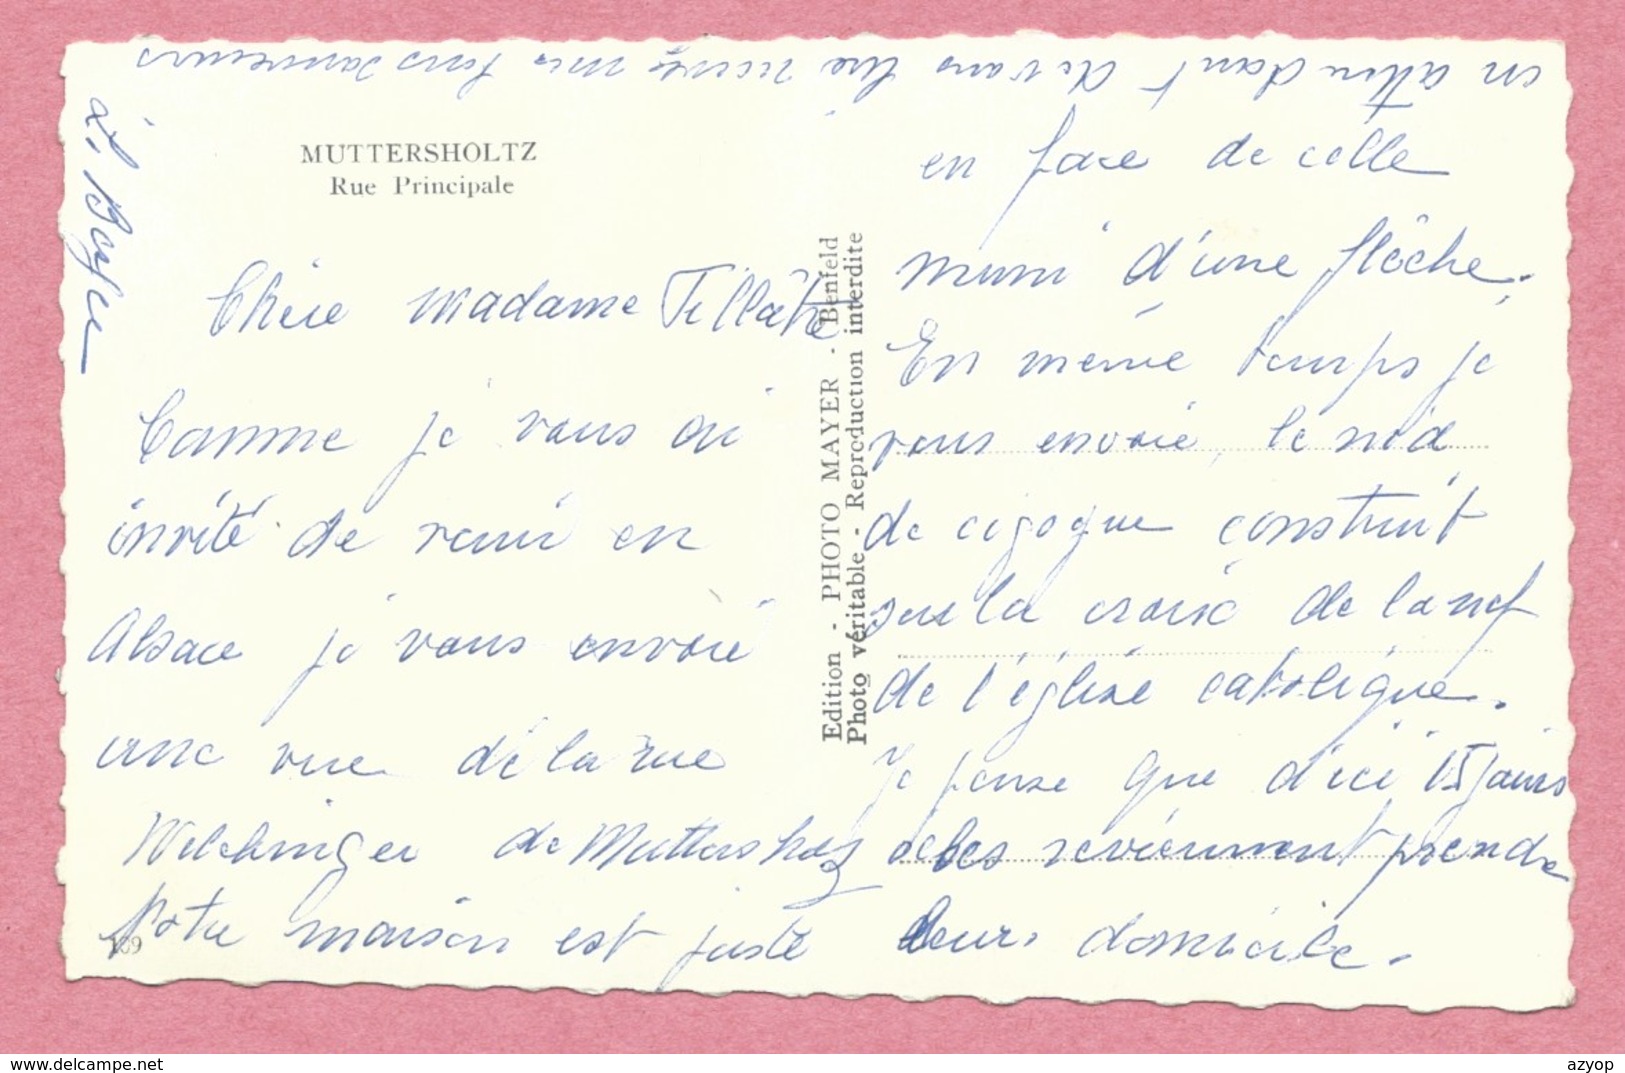 MUTTERSHOLTZ
Rue Principale
Chère Madame
Comme je vous ai
invité de venir en
Alsace je vous envoie
une vue de la rue
Welchinger de Muttersholtz
Notre maison est juste
189
Edition - PHOTO MAYER - Benfeld
Photo véritable - Reproduction interdite
en face de celle
muni d'une flêche.
En même temps je
vous envoie, le nid
de cigogne construit
sur la croix de la nef
de l'église catolique.
Je pense que d'ici 15 jours
elles reviennent prendre
leur domicile.
en attendant de vous lire recevez mes
L.
azyop